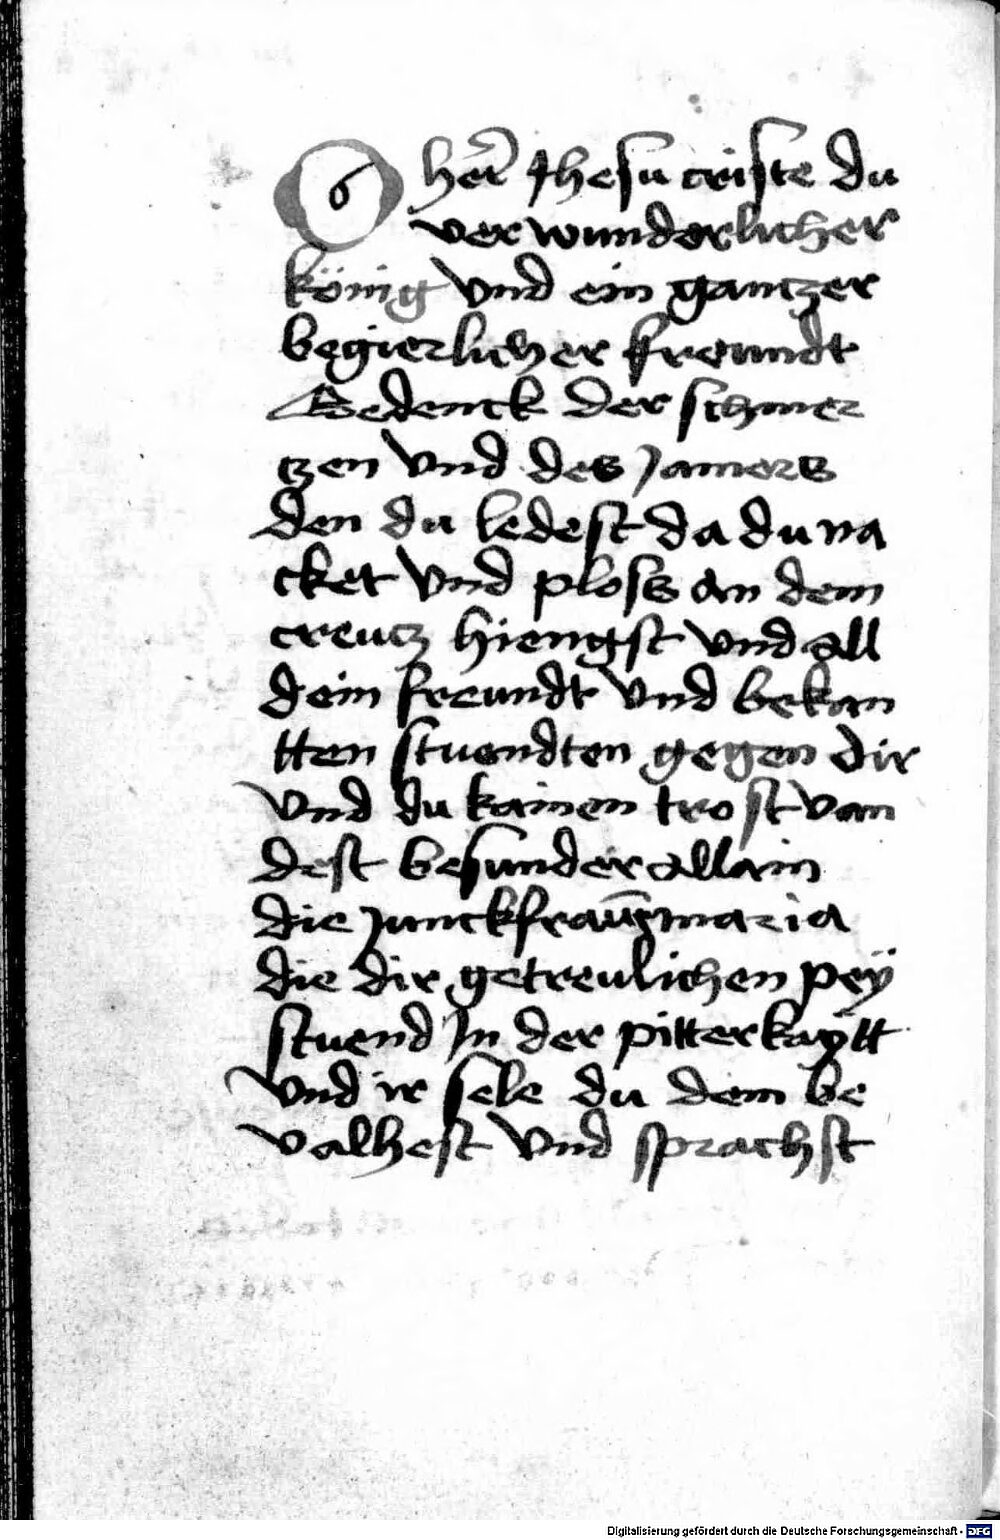 O her Jhesu criste du
verwunderlicher
könig vnd ein gantzer
begierlicher freundt
Gedenck der schmer
tzen vnd des Jamers
den du ledest da du na
cket vnd ploss an dem
creutz hiengst vnd all
dein freundt vnd bekan
tten stuendten gegen dir
vnd du kainen trost van
dest besunder allain
die Junckfraw maria
die dir getreulichen peÿ
stuend In der pitterkaytt
vnd ir sele du dem be
valhest vnd sprachst
Digitalisierung gefördert durch die Deutsche Forschungsgemeinschaft - DFG